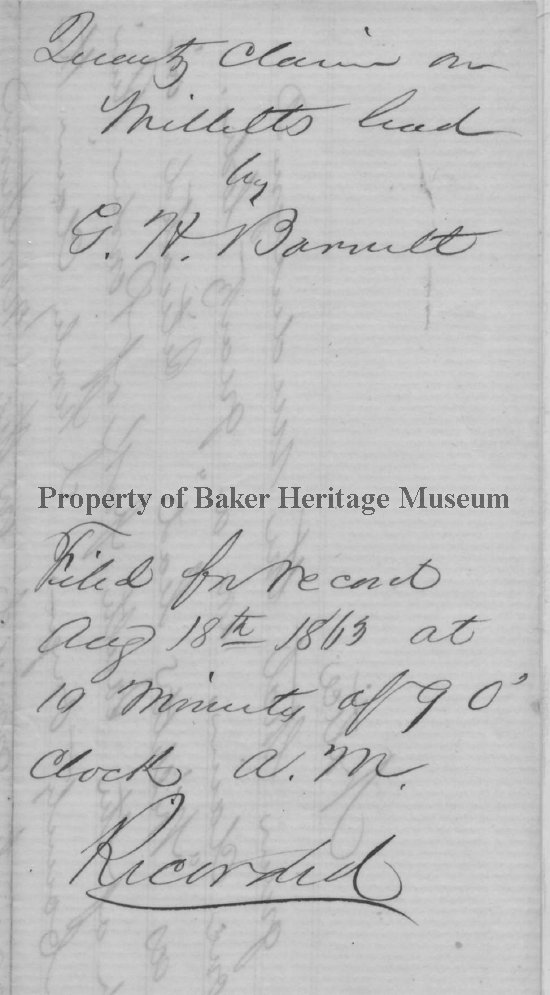 Quartz Claim on
Milletts lead
by
G. H. Barnett
Property of Baker Heritage Museum
Filed for record
Aug 18th 1863 at
19 Minuts of 9 O'
Clock A. M.
Recorded